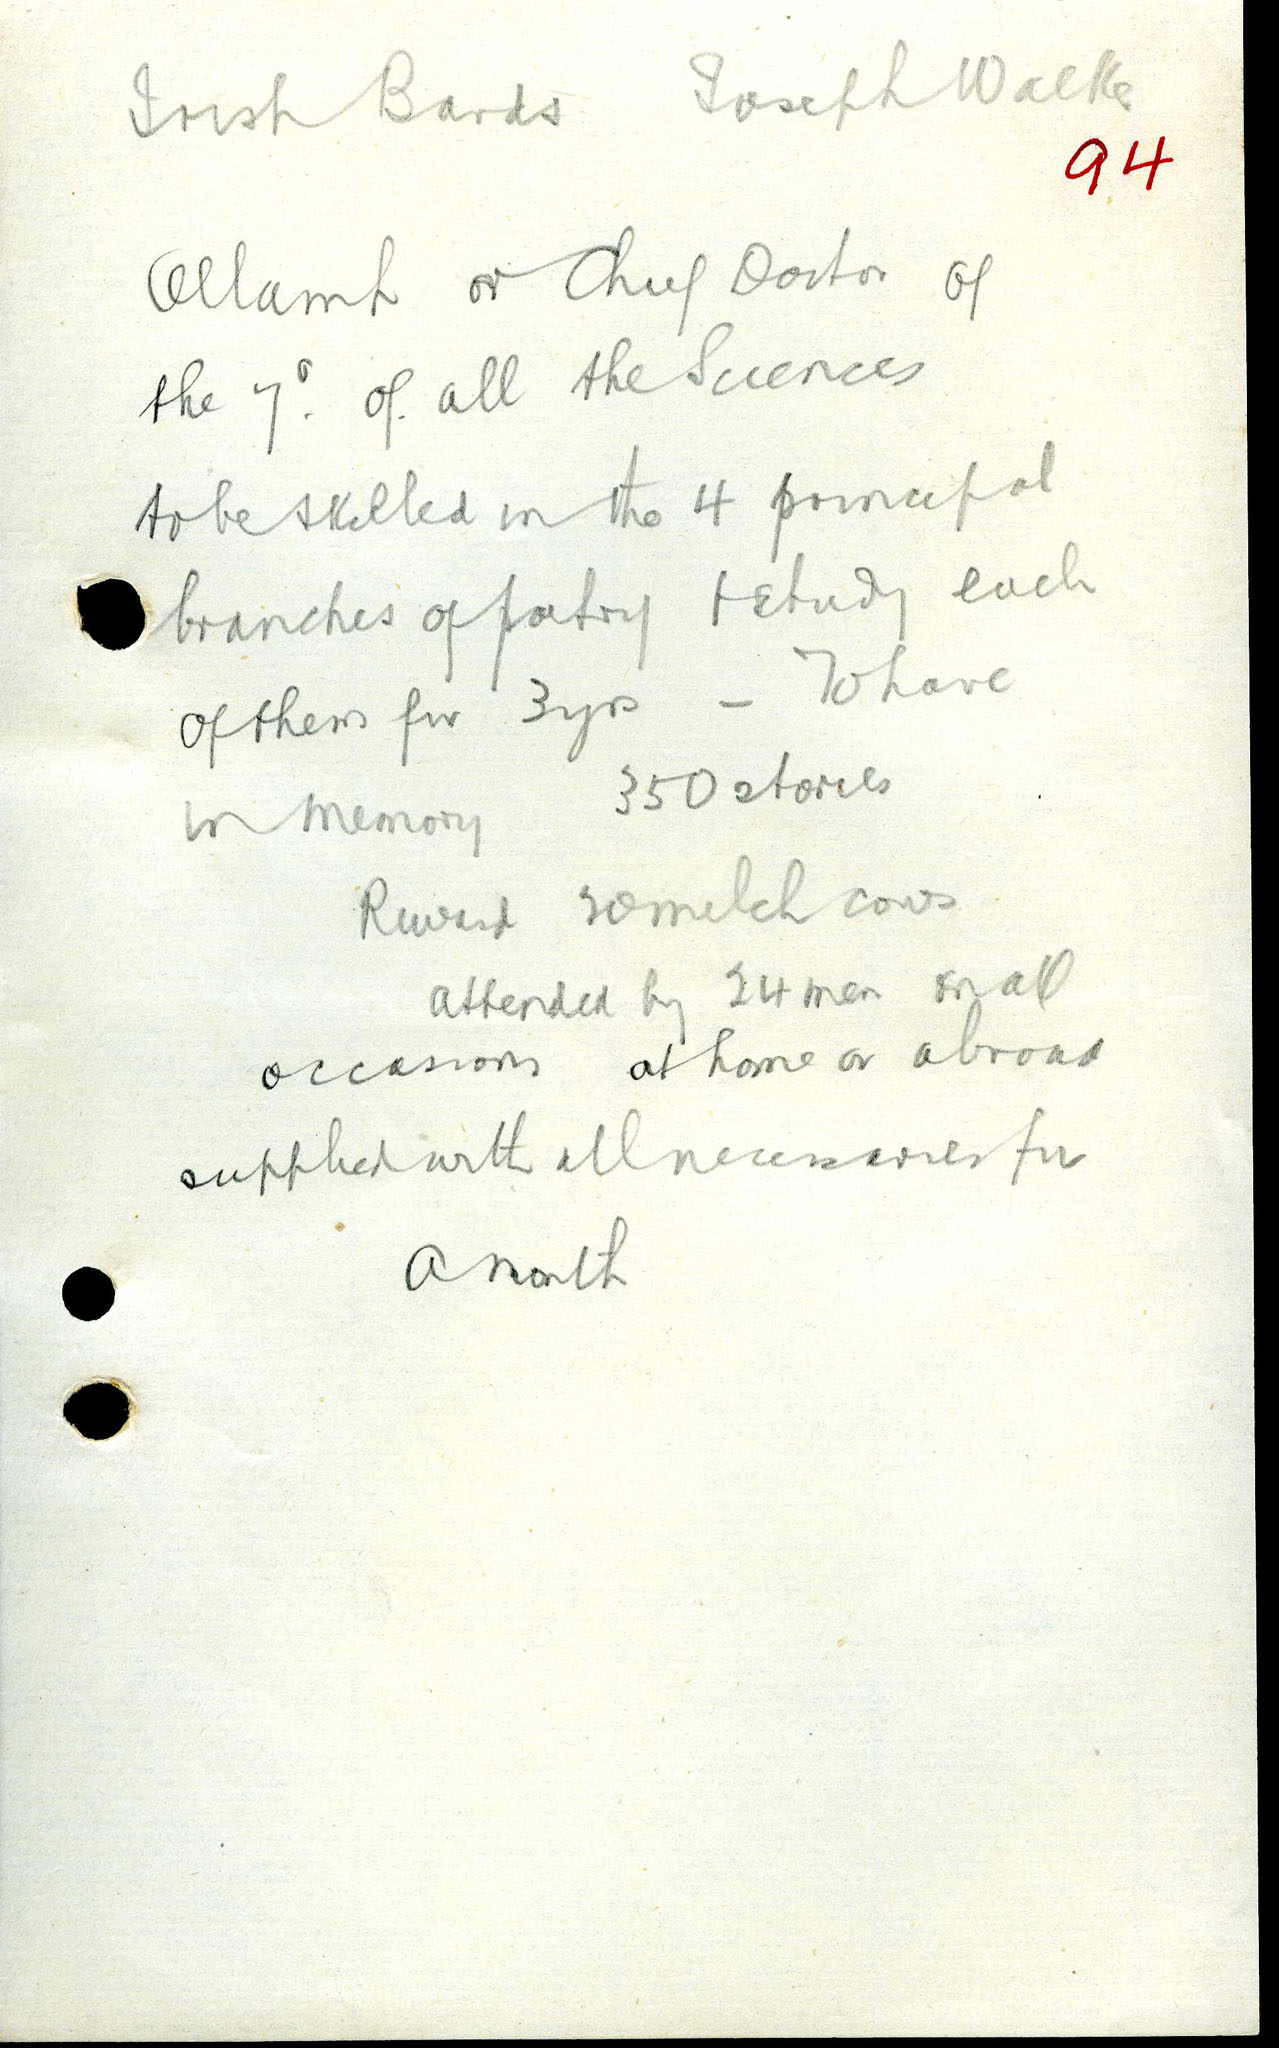 Irish Bards Joseph Walker
94
Ollamh or Chief Doctor of
the 7° of all the Sciences
to be skilled in the 4 principal
branches of poetry + study each
of them for 3 yrs – To have
in memory 350 stories
Reward 20 melch cows
attended by 24 men on all
occasions at home or abroad
supplied with all necessaries for
a month